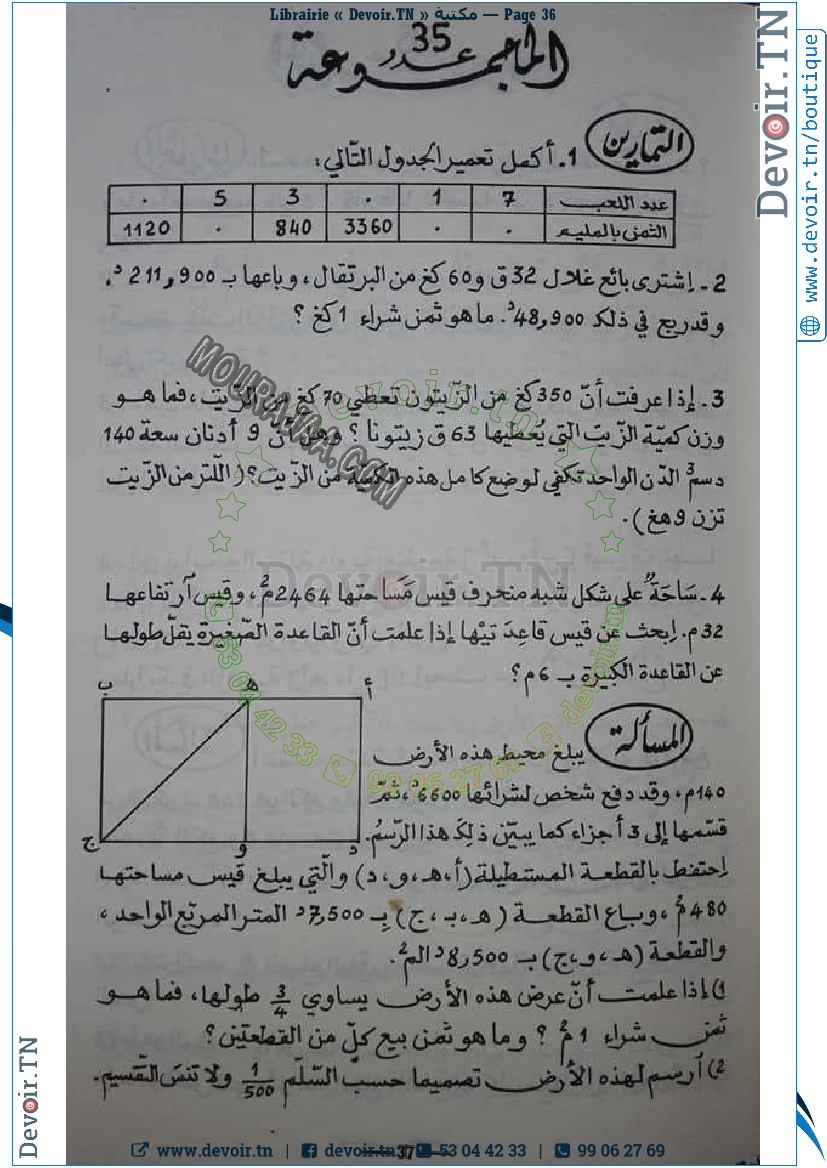 Librairie « Devoir.TN » مكتبة — Page 36
المجموعة عدد 35
التمارين
1. أكمل تعمير الجدول التالي:
عدد اللعب 7 1 . 3 5 .
الثمن بالمليم . . 3360 840 . 1120
2 ـ إشترى بائع غلال 32 ق و 60 كغ من البرتقال، وباعها بـ 211,900 د.
وقد ربح في ذلك 48,900 د. ما هو ثمن شراء 1 كغ ؟
3 ـ إذا عرفت أنّ 350 كغ من الزّيتون تعطي 70 كغ من الزّيت، فما هو
وزن كميّة الزّيت التي يُعطيها 63 ق زيتونا ؟ وهل أنّ 9 أدنان سعة 140
دسم3 الدّن الواحد تكفي لوضع كامل هذه الكميّة من الزّيت؟ (اللّتر من الزّيت
تزن 9 هغ).
4 ـ سَاحَةٌ على شكل شبه منحرف قيس مَسَاحتها 2464 م2، وقيس آرتفاعها
32 م. إبحث عن قيس قاعِدَتيْها إذا علمت أنّ القاعدة الصّغيرة يقلّ طولها
عن القاعدة الكبيرة بـ 6 م؟
ب هـ أ
ج و د
المسألة
يبلغ محيط هذه الأرض
140 م، وقد دفع شخص لشرائها 6600 د، ثمّ
قسّمها إلى 3 أجزاء كما يبيّن ذلك هذا الرّسم.
إحتفظ بالقطعة المستطيلة (أ، هـ، و، د) والّتي يبلغ قيس مساحتها
480 م2، وباع القطعة (هـ، ب، ج) بِـ 7,500 د المتر المربّع الواحد،
والقطعة (هـ، و، ج) بـ 8,500 د الم2.
1) إذا علمت أنّ عرض هذه الأرض يساوي 3/4 طولها، فما هو
ثمن شراء 1 م2 ؟ وما هو ثمن بيع كلّ من القطعتين ؟
2) آرسم لهذه الأرض تصميما حسب السّلّم 1/500 ولا تنسَ التّقسيم.
37
MOURAJAA.COM
devoir.tn
Devoir.TN
53 04 42 33
99 06 27 69
devoir.tn
Devoir.TN
www.devoir.tn/boutique
Devoir.TN
www.devoir.tn | devoir.tn | 53 04 42 33 | 99 06 27 69